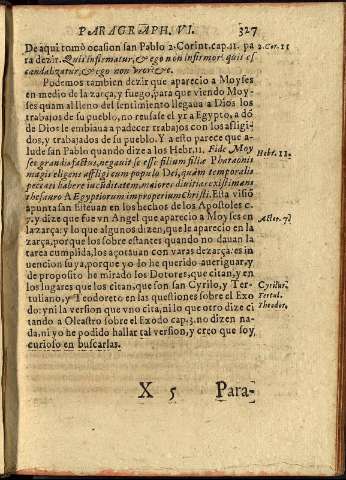 PARAGRAPH. VI. 327
De aqui tomò ocasion san Pablo 2. Corint. cap. 11. pa
ra dezir. Quis infirmatur, & ego non infirmor? quis es
candalizatur, & ego non vror? &c.
Podemos tambien dezir que aparecio a Moyses
en medio de la zarça, y fuego, para que viendo Moy-
ses quam al lleno del sentimiento llegaua a Dios los
trabajos de su pueblo, no reusase el yr a Egypto, a dó
de Dios le embiaua a padecer trabajos con los afligi-
dos, y trabajados de su pueblo. Y a esto parece que a-
lude san Pablo quando dize a los Hebr. 11. Fide Moy
ses grandis factus, negauit se esse filium filiæ Pharaonis
magis eligens affligi cum populo Dei, quàm temporalis
peccati habere iucũditatem, maiores diuitias existimans
thesauro Ægyptiorum improperium Christi. Esta visiõ
apuntan san Esteuan en los hechos de los Apostoles c.
7. y dize que fue vn Angel que aparecio a Moyses en
la zarça: y lo que algunos dizen, que le aparecio en la
zarça, porque los sobre estantes quando no dauan la
tarea cumplida, los açotauan con varas de zarça: es in
uencion suya, porque yo lo he querido aueriguar, y
de proposito he mirado los Dotores, que citan, y en
los lugares que los citan, que son san Cyrilo, y Ter-
tuliano, y Teodoreto en las questiones sobre el Exo
do: y ni la version que vno cita, ni lo que otro dize ci
tando a Oleastro sobre el Exodo cap. 3. no dizen na-
da, ni yo he podido hallar tal version, y creo que soy
curioso en buscarlas.
2. Cor. 11
Hebr. 11.
Actor. 7.
Cyrillus.
Tertul.
Theodor.
X 5 Para-